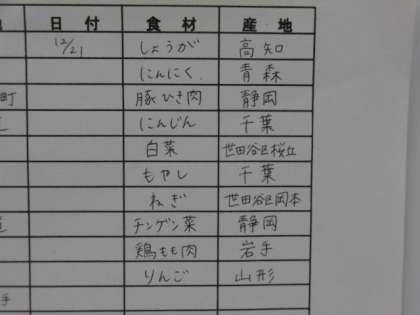 日付 食材 産地
12/21 しょうが 高知
にんにく 青森
町 豚ひき肉 静岡
にんじん 千葉
白菜 世田谷区桜丘
もやし 千葉
ねぎ 世田谷区岡本
チンゲン菜 静岡
鶏もも肉 岩手
りんご 山形
手